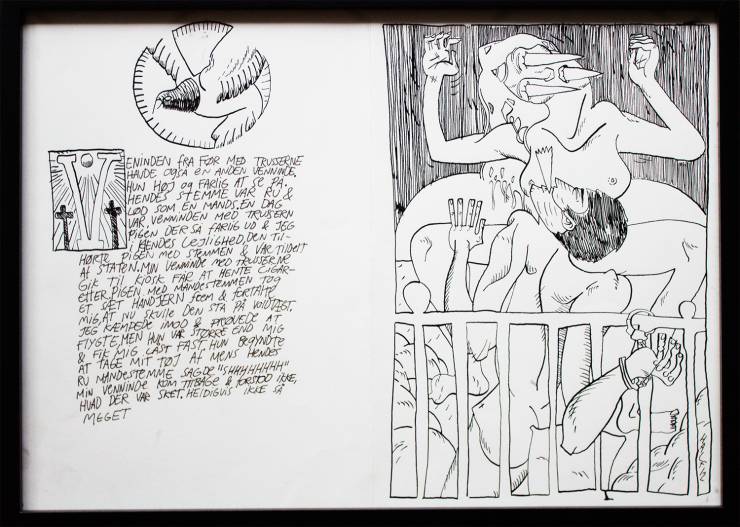 VENINDEN FRA FØR MED TRUSSERNE
HAVDE OGSÅ EN ANDEN VENINDE,
HUN HØJ OG FARLIG AT SE PÅ.
HENDES STEMME VAR RU &
LØD SOM EN MANDS. EN DAG
VAR VENINDEN MED TRUSSERN
PIGEN DER SÅ FARLIG UD & JEG
I HENDES LEJLIGHED, DEN TIL-
HØRTE PIGEN MED STEMMEN & VAR TILDELT
AF STATEN. MIN VENINDE MED TRUSSERNE
GIK TIL KIOSK FAR AT HENTE CIGAR-
ETTER. PIGEN MED MANDESTEMMEN TOG
ET SÆT HÅNDJERN FREM & FORTALTE
MIG, AT NU SKULLE DEN STÅ PÅ VOLDTÆGT.
JEG KÆMPEDE IMOD & PRØVEDE AT
FLYGTE, MEN HUN VAR STØRRE END MIG
& FIK MIG LÅST FAST. HUN BEGYNDTE
AT TAGE MIT TØJ AF MENS HENDES
RU MANDESTEMME SAGDE "SHHHHHHHH"
MIN VENINDE KOM TILBAGE & FORSTOD IKKE,
HVAD DER VAR SKET. HELDIGVIS IKKE SÅ
MEGET